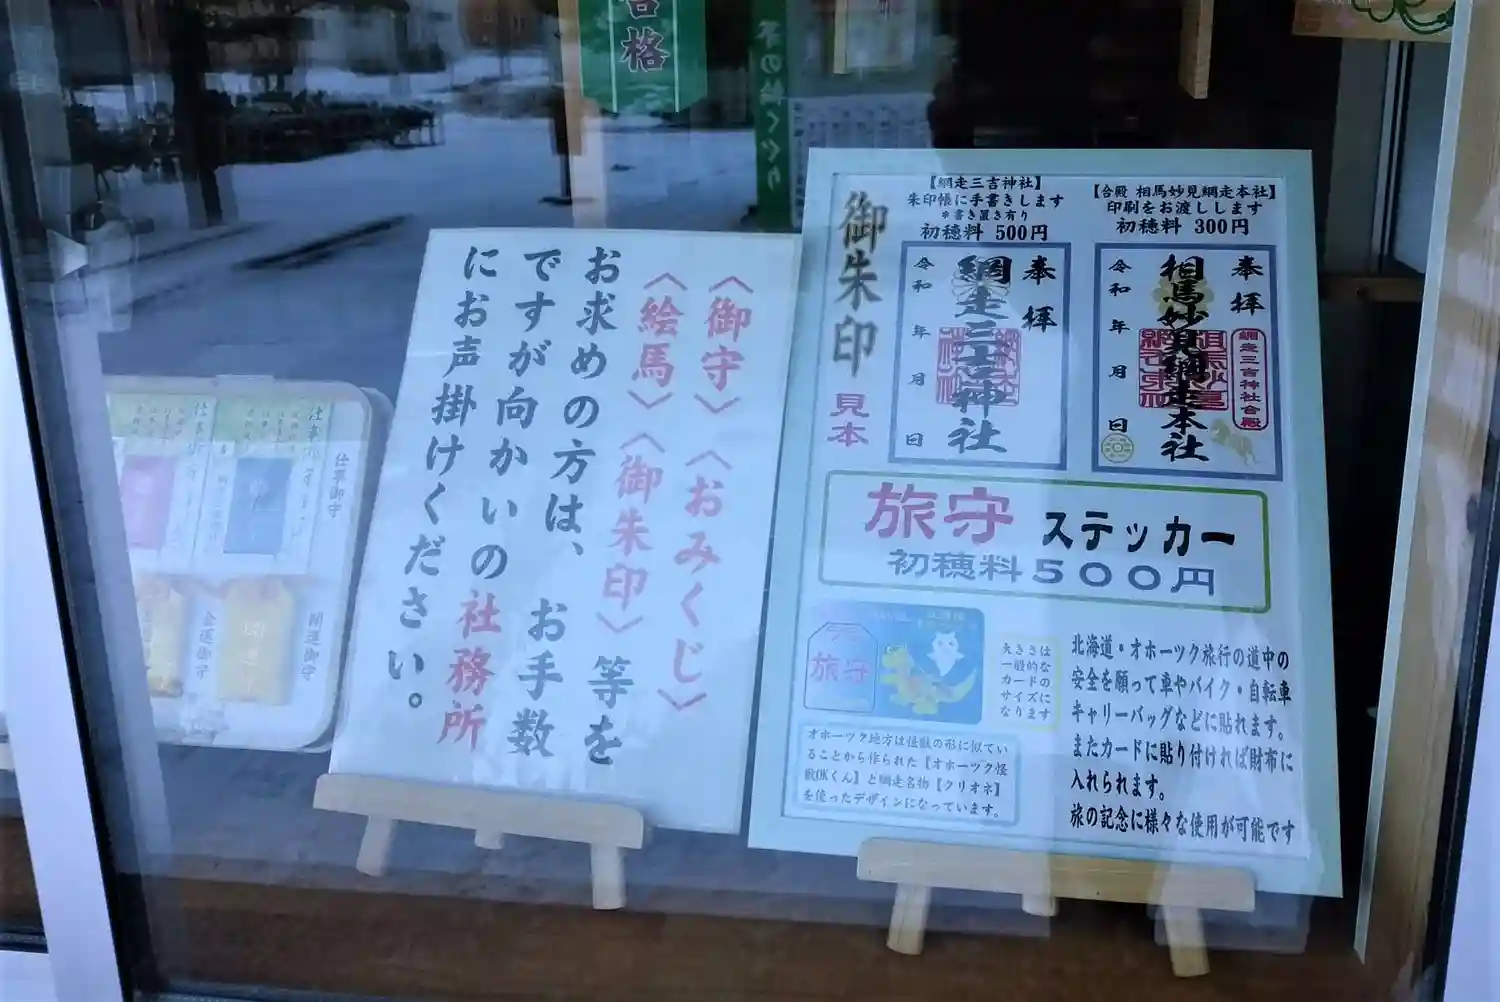 合格
茅の輪くぐり
仕事御守
開運御守
金運御守
〈御守〉〈おみくじ〉
〈絵馬〉〈御朱印〉等を
お求めの方は、お手数
ですが向かいの社務所
にお声掛けください。
御朱印
見本
【網走三吉神社】
朱印帳に手書きします
*書き置き有り
初穂料 500円
奉拝
網走三吉神社
令和 年 月 日
【合殿 相馬妙見網走本社】
印刷をお渡しします
初穂料 300円
奉拝
相馬妙見網走本社
網走三吉神社合殿
令和 年 月 日
旅守 ステッカー
初穂料500円
旅守
大きさは
一般的な
カードの
サイズに
なります
オホーツク地方は怪獣の形に似てい
ることから作られた【オホーツク怪
獣OKくん】と網走名物【クリオネ】
を使ったデザインになっています。
北海道・オホーツク旅行の道中の
安全を願って車やバイク・自転車
キャリーバッグなどに貼れます。
またカードに貼り付ければ財布に
入れられます。
旅の記念に様々な使用が可能です